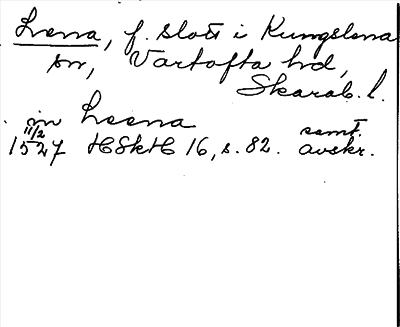 Lena, f. slott i Kungslena
sn, Vartofta hd,
Skarab. l.
in Leena
11/2 samt.
1527 HSkH 16, s. 82. avskr.